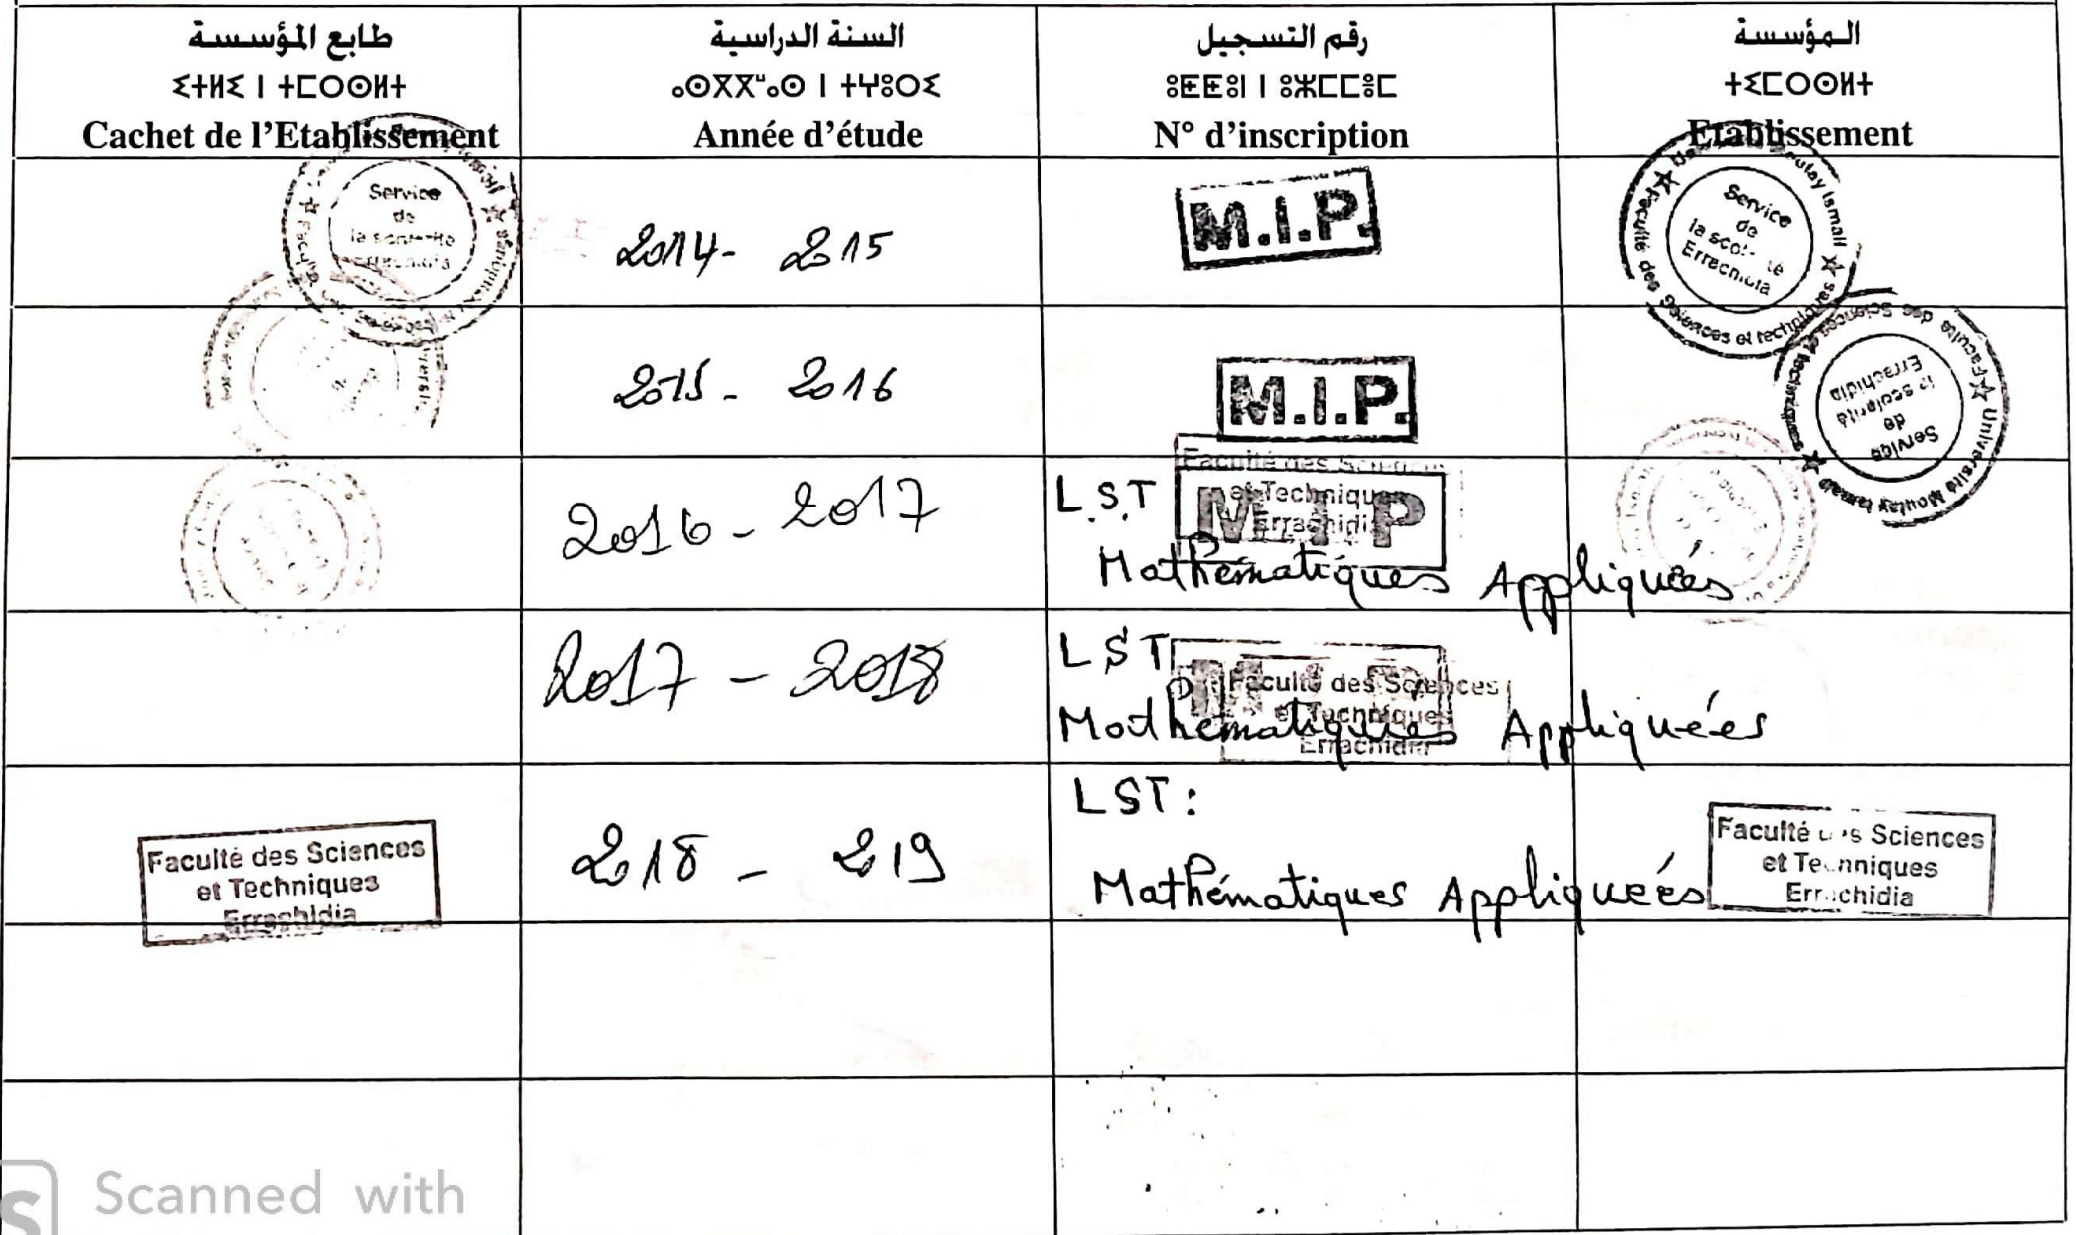 طابع المؤسسة
ⵉⵜⵍⵉ ⵏ ⵜⵎⵔⵙⵍⵜ
Cachet de l'Etablissement
السنة الدراسية
ⴰⵙⴳⴳⵯⴰⵙ ⵏ ⵜⵖⵓⵔⵉ
Année d'étude
رقم التسجيل
ⵓⵟⵟⵓⵏ ⵏ ⵓⵣⵎⵎⵓⵎ
N° d'inscription
المؤسسة
ⵜⵉⵎⵔⵙⵍⵜ
Etablissement
Service
de
2014- 2015
M.I.P.
Moulay Ismail
Faculté des Sciences et techniques
Service
de
Errachidia
2015 - 2016
M.I.P.
Faculté des Sciences et techniques
Université Moulay Ismail
Service
de
la scolarité
Errachidia
2016 - 2017
L.S.T
Faculté des Sciences
et Techniques
Errachidia
M I P
Mathématiques Appliquées
2017 - 2018
LST
M.I.P
Faculté des Sciences
et Techniques
Errachidia
Mathématiques Appliquées
Faculté des Sciences
et Techniques
Errachidia
2018 - 219
LST:
Mathématiques Appliqueés
Faculté des Sciences
et Techniques
Errachidia
Scanned with